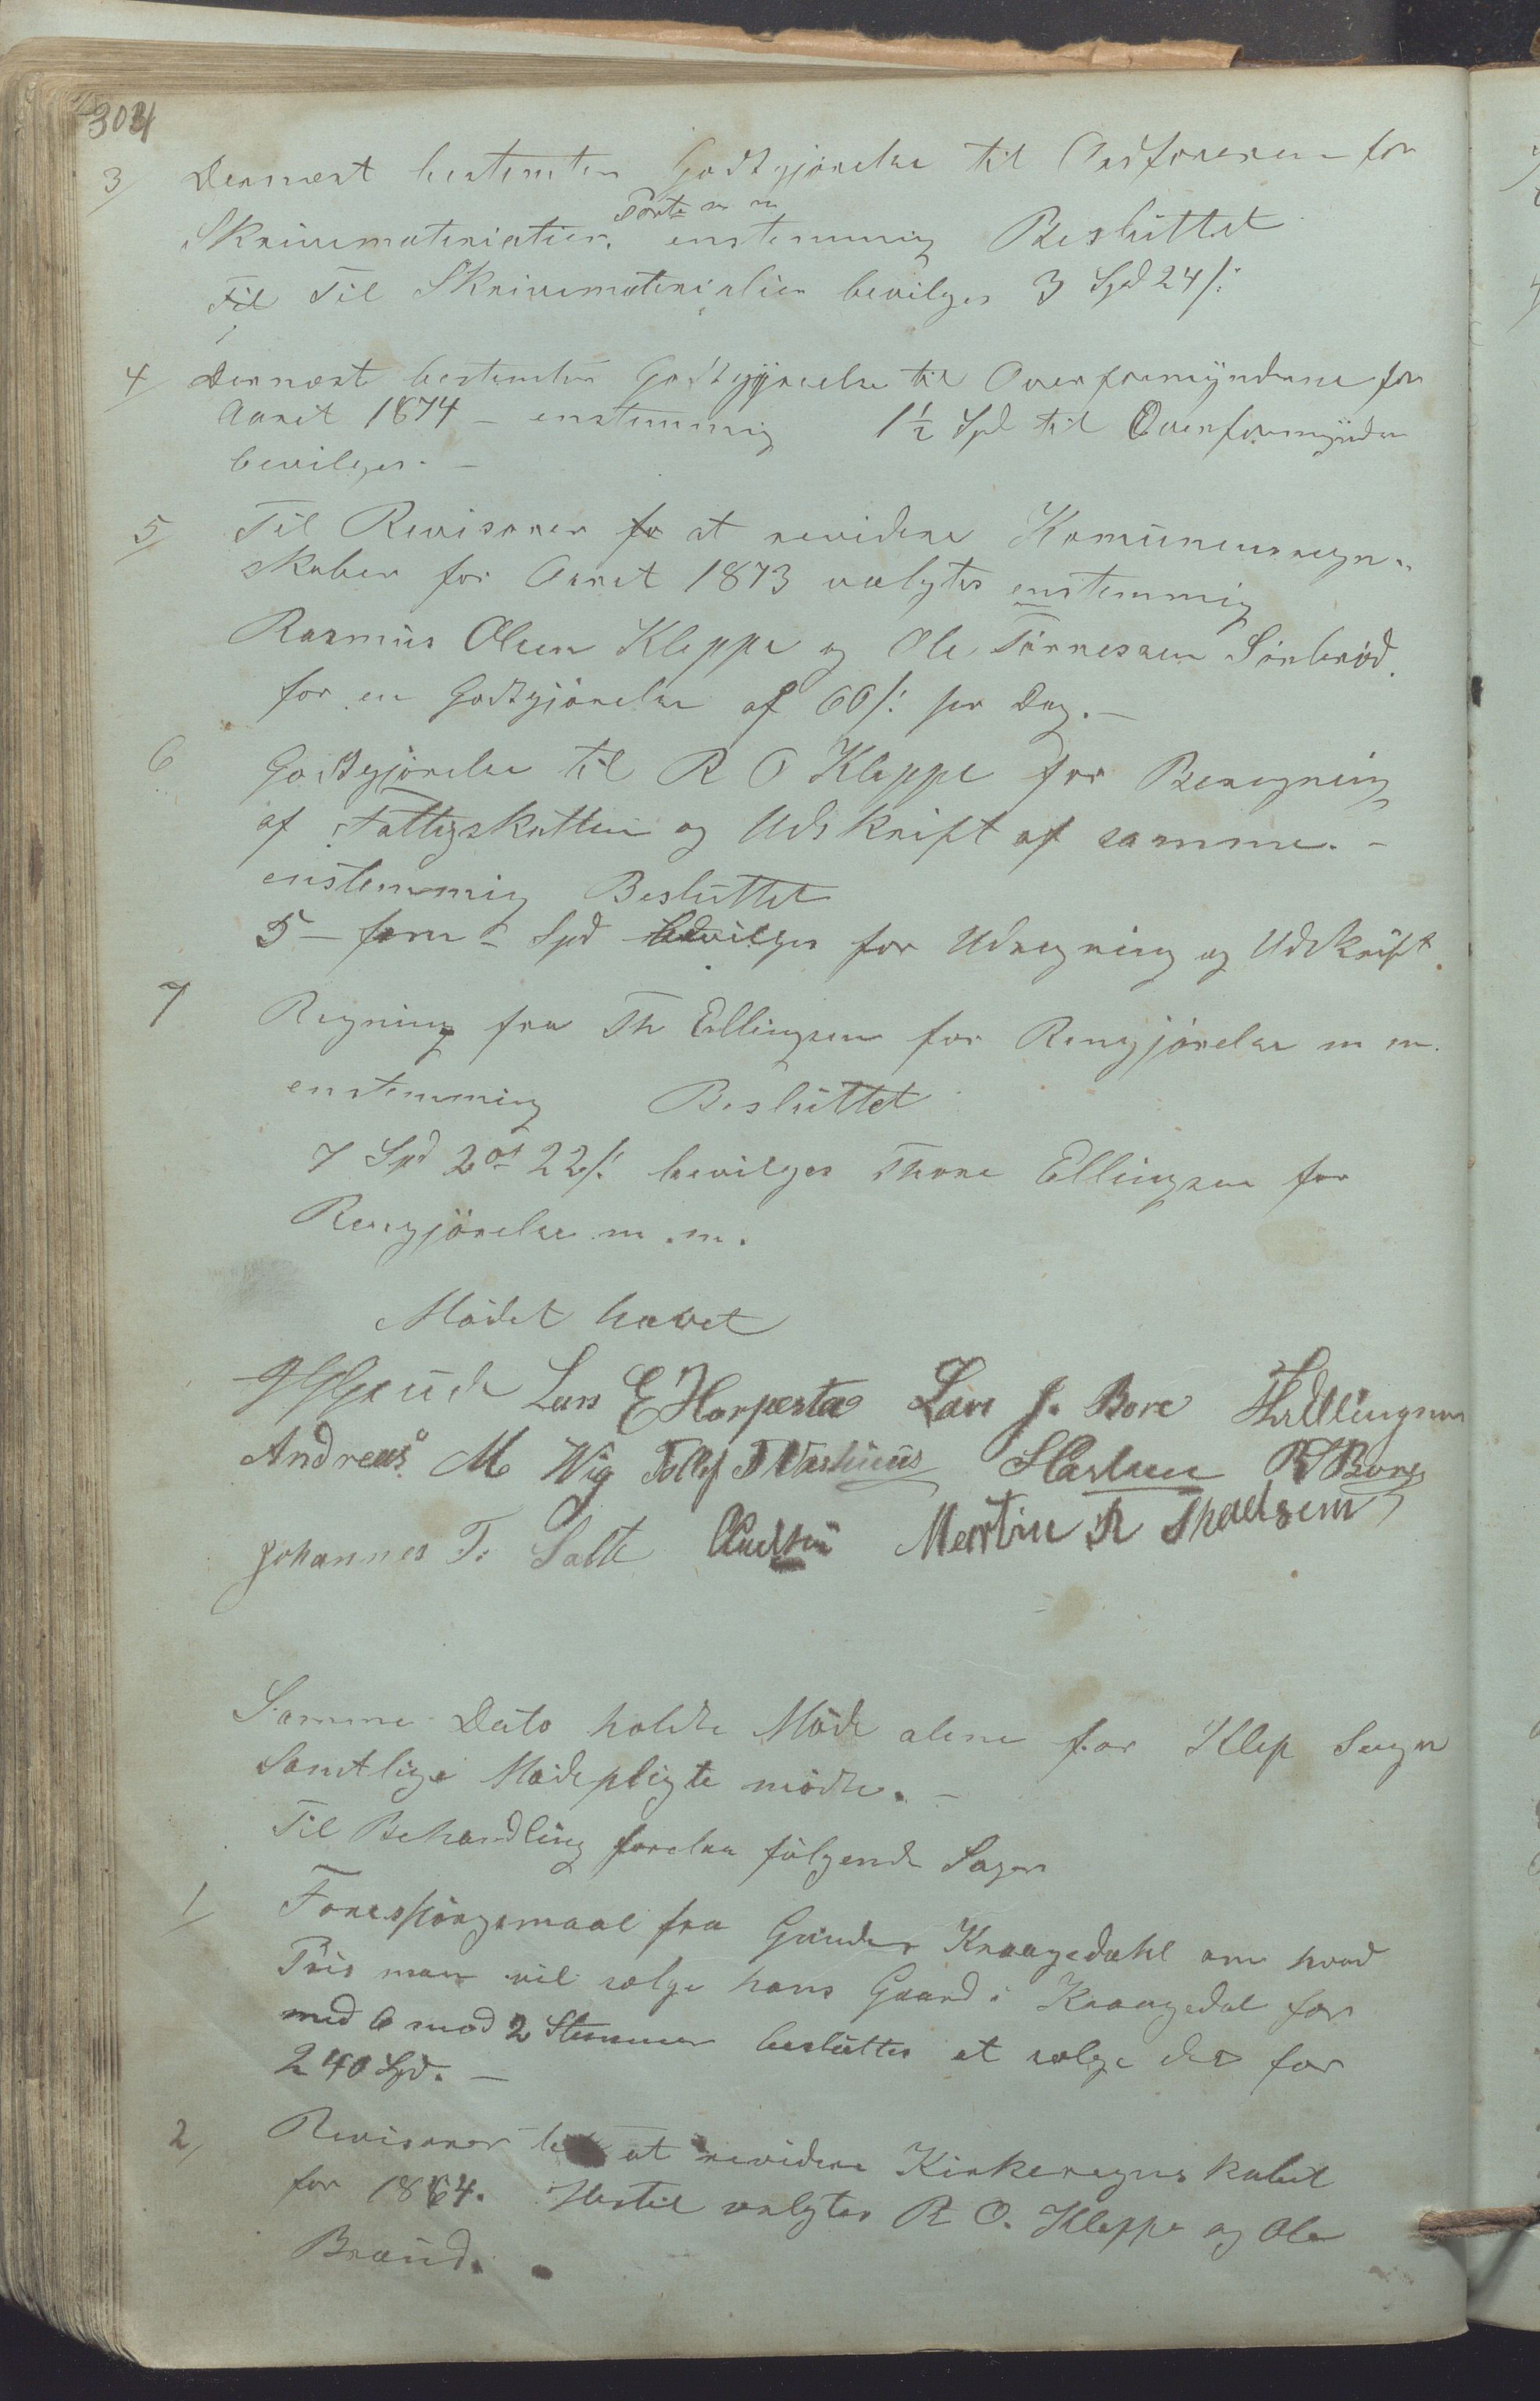 304
3/ Dernæst bestemtes Godtgjörelse til Ordföreren for
Porto m m
Skrivematerialier, enstemmig Besluttet
Til Til Skrivematerialier bevilges 3 Spd 24 /:
4/ Dernæst bestemtes Godtgjörelse til Overformynderne for
Aaret 1874 – enstemmig 1½ Spd til Overformynder
bevilges. –
5/ Til Revisorer fo at revidere Komuneregn-
skaber for Aaret 1873 valgtes enstemmig
Rasmus Olsen Kleppe og Ole Tönnessen Sörbröd.
for en Godtgjörelse af 60 /: per Dag. –
6 Godtgjörelse til R O Kleppe for Beregning
af Fattigskatten og Udskrift af samme. –
enstemmig Besluttet
5 – fem – Spd bevilges for Udregning og Udskrift.
7 Regning fra Th Ellingsen for Rengjörelse m m.
enstemmig Besluttet
7 Spd 2 ort 22 /: bevilges Thore Ellingsen for
Rengjörelse m. m.
Mödet hævet
Lars E Horpestad Lars J. Bore Th Ellingsen
Andreas M Wig Tollef T R Bore
Johannes T. Salte Martin R Skadsem
Samme Dato holdte Möde alene for Klep Sogn
Samtlige Mödepligte mödte. –
Til Behandling forelaa fölgende Sager
1/ Forespörgsmaal fra Gunder Kraagedahl om hvad
Pris man vil sælge hans Gaard i Kraagedal for
med 6 mod 2 Stemmer besluttes at sælge det for
240 Spd. –
2/ Revisorer til at revidere Kirkeregnskabet
for 1864. Hertil valgtes R O. Kleppe og Ole
Braud.